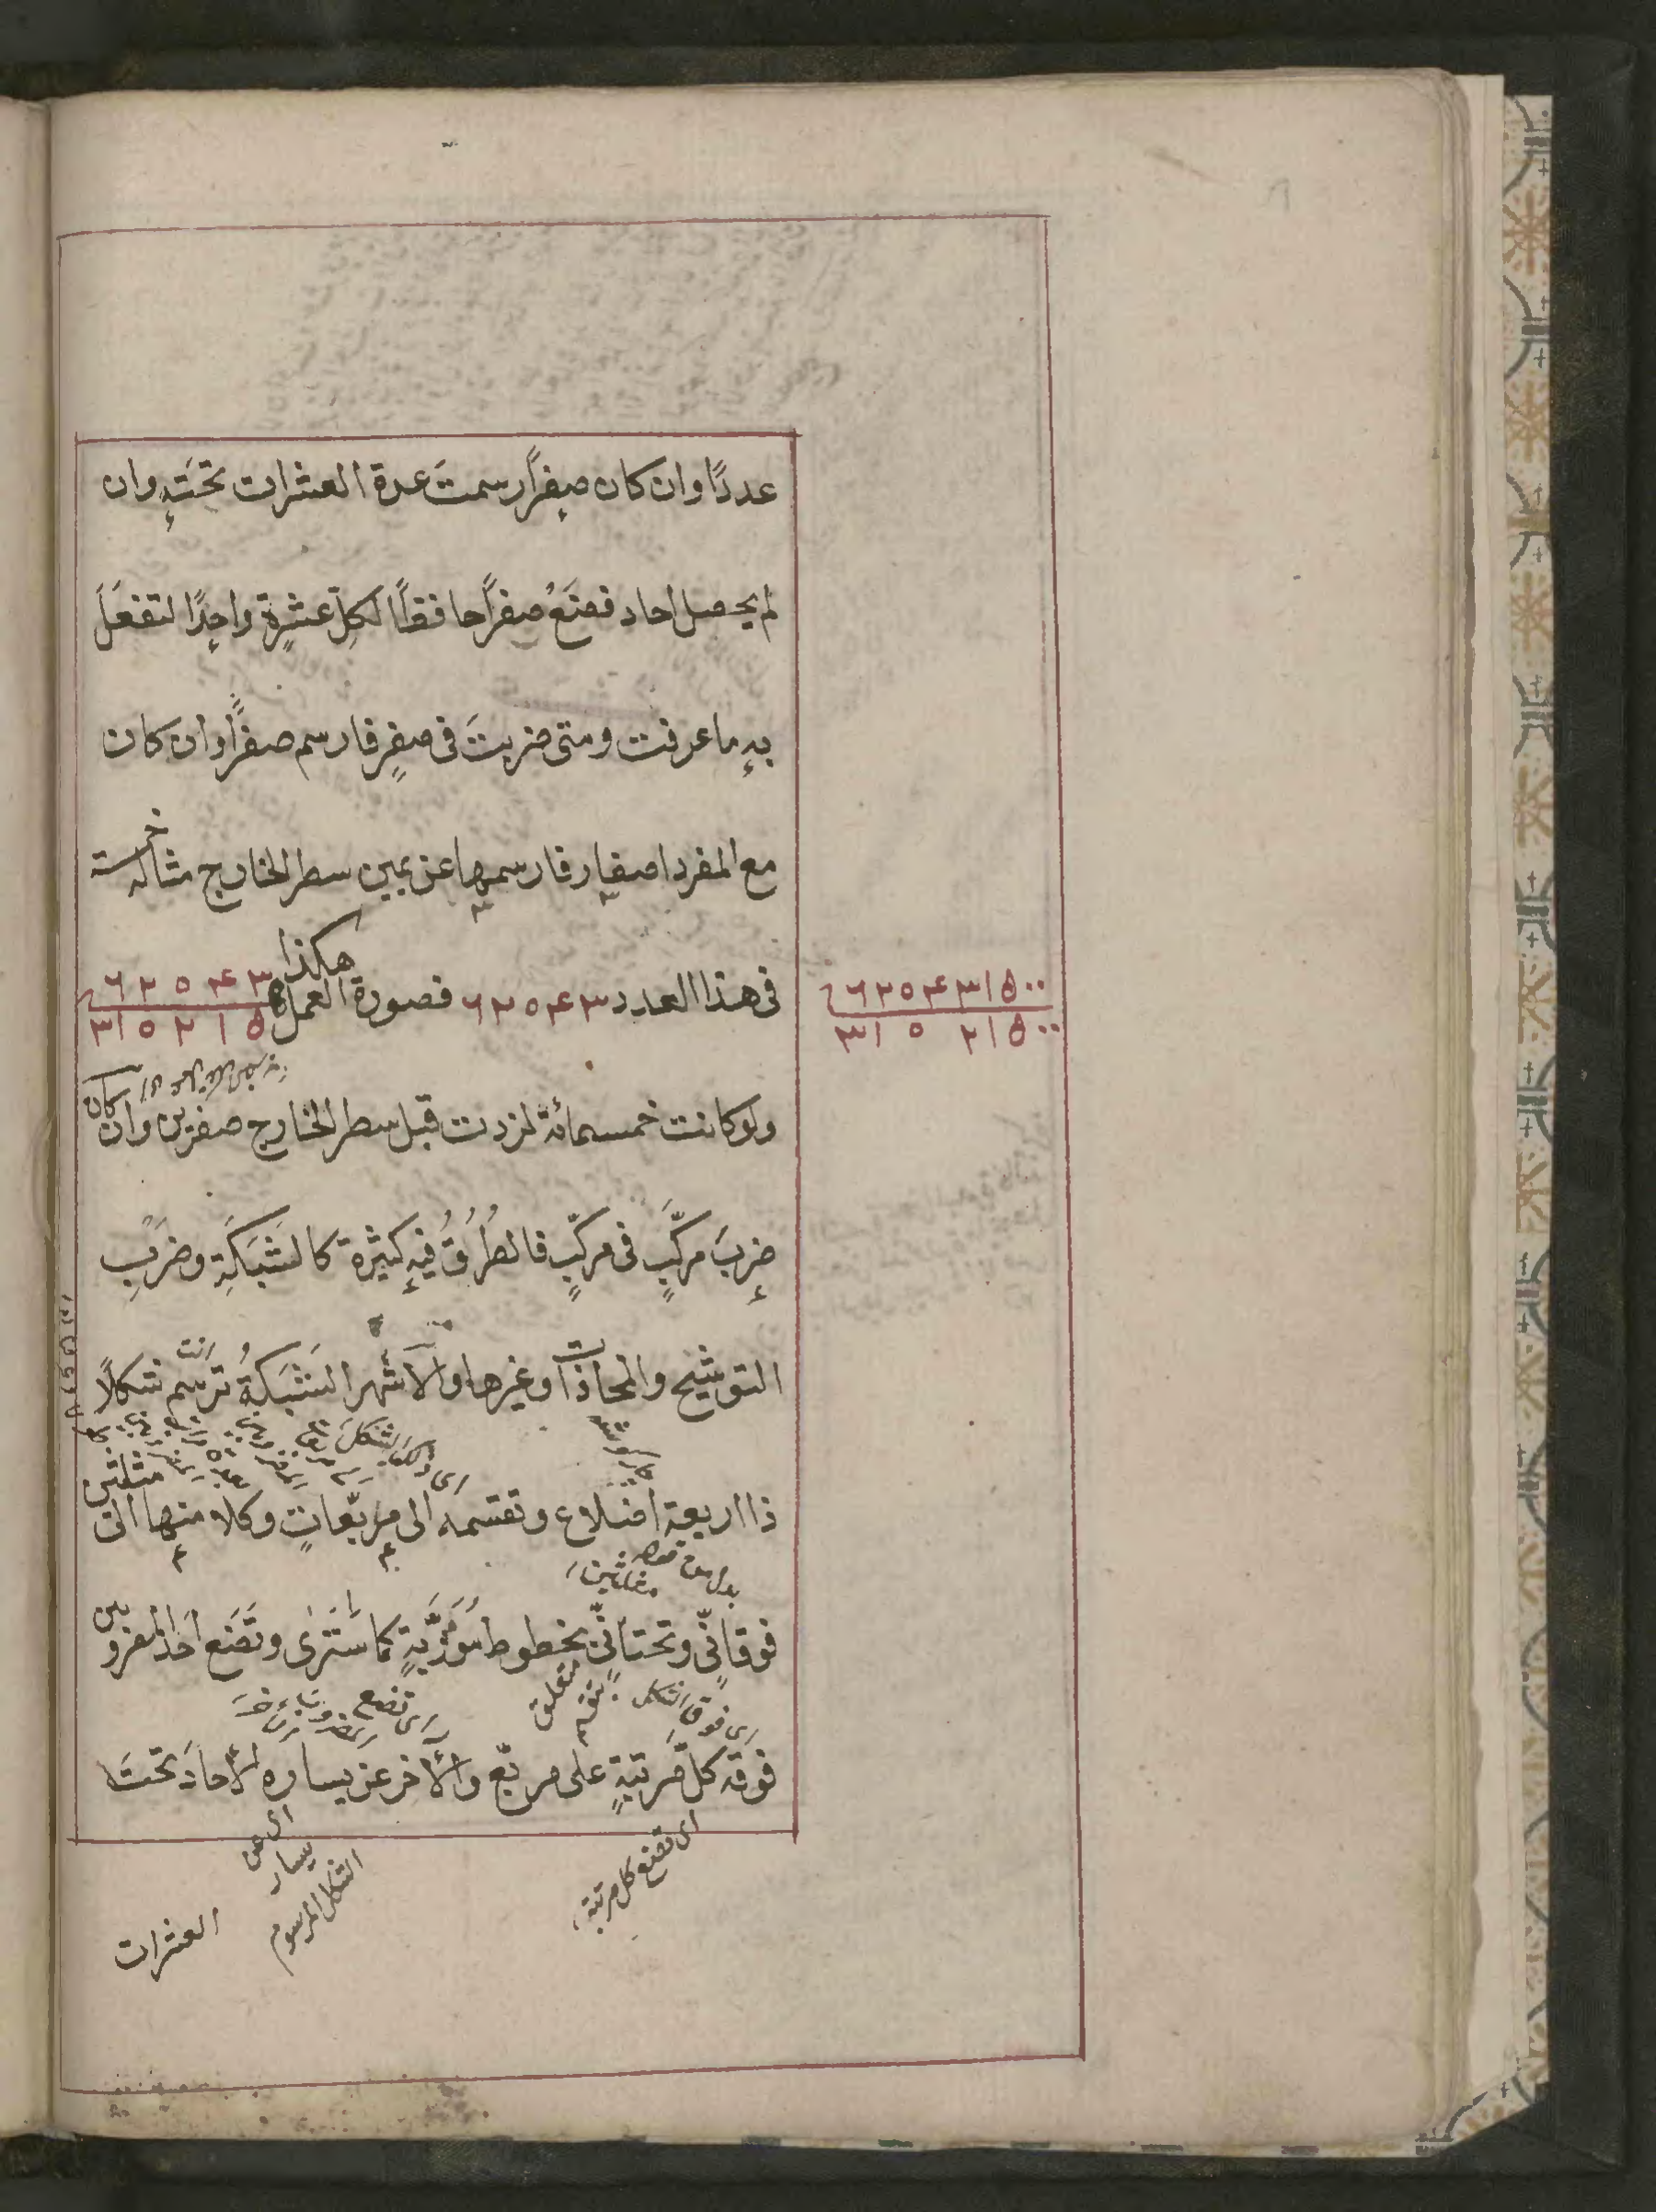 عددًا وان كان صِفرًا رسمتَ عدة العشرات تحتَهِ وان
لم يحصل احاد فضَعْ صفرًا حافظًا لكِلّ عشرةٍ واحِدًا لتفعَلَ
بهِ ما عرفت ومتى ضربتَ فى صفرٍ فارسم صفرًا وان كان
مع المفرد اصفار فارسمها عن يمين سطر الخارج مثاله خمسة
فى هذا العدد ٦٢٥٤٣ فصورة العمل هكذا
٦٢٥٤٣
٣١٢٧١٥
٦٢٥٤٣ ٥٠٠
ولو كانت خمسمائة لزدت قبل سطر الخارج صفرين وان كان
ضربَ مركّبٍ فى مركّبٍ فالطُرُقُ فيهِ كثيرة كالشَبَكَةِ وضَربِ
التوشيح والمحاذات وغيرها والاشهر الشَبَكَةُ ترسم انت شكلًا
ذا اربعة اضلاع وتقسمه الى مربّعاتٍ وكلا منها الى مثلثين
فوقانّى وتحتانّى بخطوط مُوَرَّبَةٍ كما سَتَرٰى وتَضَع احَدَ المضروبين
فوقه كلّ مَرتبَةٍ على مربّع والآخر عن يساره الاحادَ تحتَ
اى فوق الشكل
متعلق بتقسم
اى تضع كل مرتبة
اى عن يسار الشكل المرسوم
العشرات